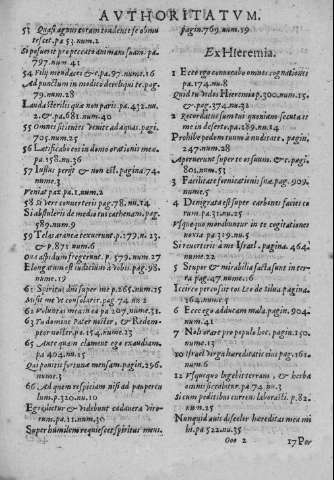 AVTHORITATVM.
53 Quasi agnus coram tondente se obmu
tescet. pa 53. num.2
Si posuerit pro peccato animam suam. pa.
797. num 41
54 Filij mendaces &c. pa 97. nume.16
Ad punctum in modico dereliqui te. pag.
79. num.28
Lauda sterilis quæ non paris. pa.432. nu.
2.& pa.681. num.40
55 Omnes sitientes Venite ad aquas. pagi.
705. num.25
56 Lætificabo eos in domo orationis mea.
pa 158. nu.36
57 Iustus perijt & non est. pagina.74.
nume.3
Veniat pax pa.1. num.2
58 Si vere conuerteris pag.78. nu.14
Si abstuleris de medio tui cathenam. pag.
589. num 9
59 Telas araneæ texuerunt. p.179. n.23.
& p.871 num.6
Oua aspidum fregerunt. p. 579. num.27
Elongatum est iudicium à vobis. pag.98.
nume.19
61 Spiritus dñi super me p.265. num.15
Misit me vt consolarer. pag 74. nu 2
62 Voluntas mea in ea pa 307. num.31.
63 Tu domine Pater noster, & Redem-
ptor noster. pa.154. numme.23
65 Ante quam clament ego exaudiam.
pa 404. nu.15
Qui ponitis fortunæ mensam. pagin,256.
nume.3
66 Ad quem respiciam nisi ad paupercu
lum. p.320. nu.10
Egredietur & videbunt cadauera viro-
rum. pa.11. num.30
Super humilem requiescet spiritus meus.
pagin.769. num.19
Ex Hieremia.
1 Ecce ego conuocabo omnes cognationes
pa.174. nu.8
Quid tu vides Hieremia p.300. num.15.
& pag.374. nu.32
2 Recordatus sum tui quoniam secuta es
me in deserto. pa.289. nu.14
Prohibe pedem tuum à nuditate. pagin,
247. num.28
Aperuerunt super te os suum. & c. pagi.
801. num.51
3 Facilitate fornicationis suæ. pag.909.
nume.5
4 Denigrata est super carbones facies eo
rum pa.31. nu.25
Vsquequo morabuntur in te cogitationes
noxia pa.319. nu.5
Si reuerteris à me Israel. pagina.464.
nume.22
5 Stupor & mirabilia facta sunt in ter-
ra pag.47. nume.16
Iecerice percussit eos Leo de silua pagina.
164. nume.5
6 Ecce ego adducam mala. pagin.904.
num.41
7 Noli orare pro populo hoc. pagin.250.
nume.13
10 Israel virga hæreditatis eius pag.161.
num.6
12 Vsquequo lugebit terram, & herba
omnis siccabitur pa 74. nu.3
Si cum peditibus currens laborasti. p.82.
num.25
Nunquid auis discolor hæreditas mea mi
hi pa.522. nu.35
Ooo 2
17 Per